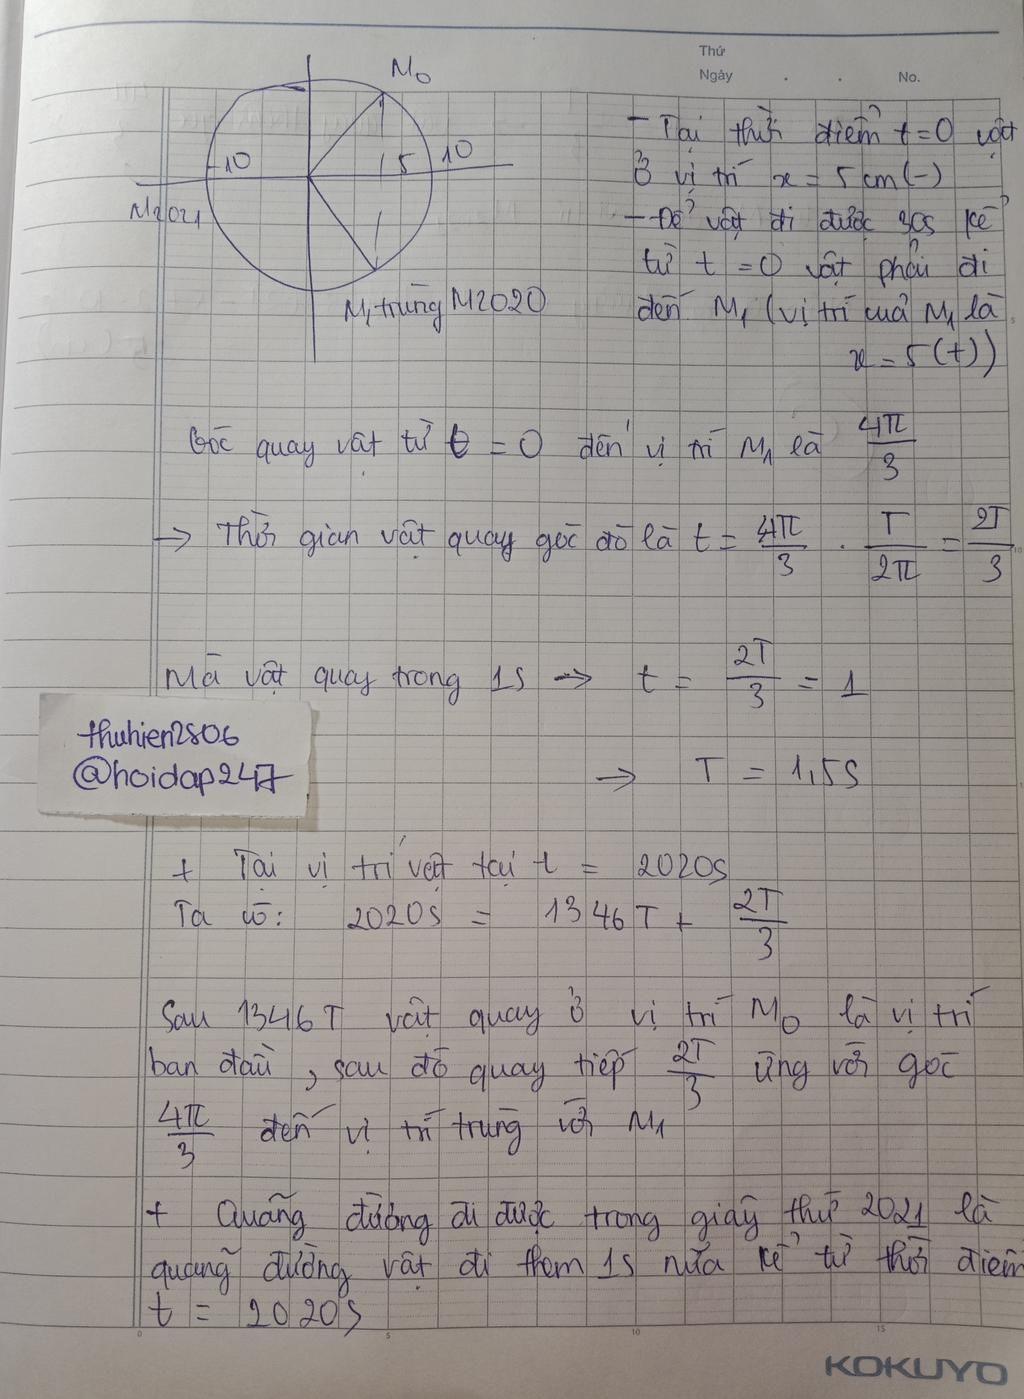 Thứ
Ngày . . No.
M₀
-10
5
10
M2021
M₁ trùng M2020
- Tại thời điểm t=0 vật
ở vị trí x = 5 cm(-)
- Để vật đi được 30s kể
từ t = 0 vật phải đi
đến M₁ (vị trí của M₁ là
x = 5(+))
Góc quay vật từ t = 0 đến vị trí M₁ là 4π/3
→ Thời gian vật quay góc đó là t = 4π/3 . T/2π = 2T/3
Mà vật quay trong 1s → t = 2T/3 = 1
thuhien2806
@hoidap247
→ T = 1,5s
+ Tại vị trí vật tại t = 2020s
Ta có: 2020s = 1346T + 2T/3
Sau 1346T vật quay ở vị trí M₀ là vị trí
ban đầu, sau đó quay tiếp 2T/3 ứng với góc
4π/3 đến vị trí trùng với M₁
+ Quãng đường đi được trong giây thứ 2021 là
quãng đường vật đi thêm 1s nữa kể từ thời điểm
t = 2020s
0 5 10 15
KOKUYO